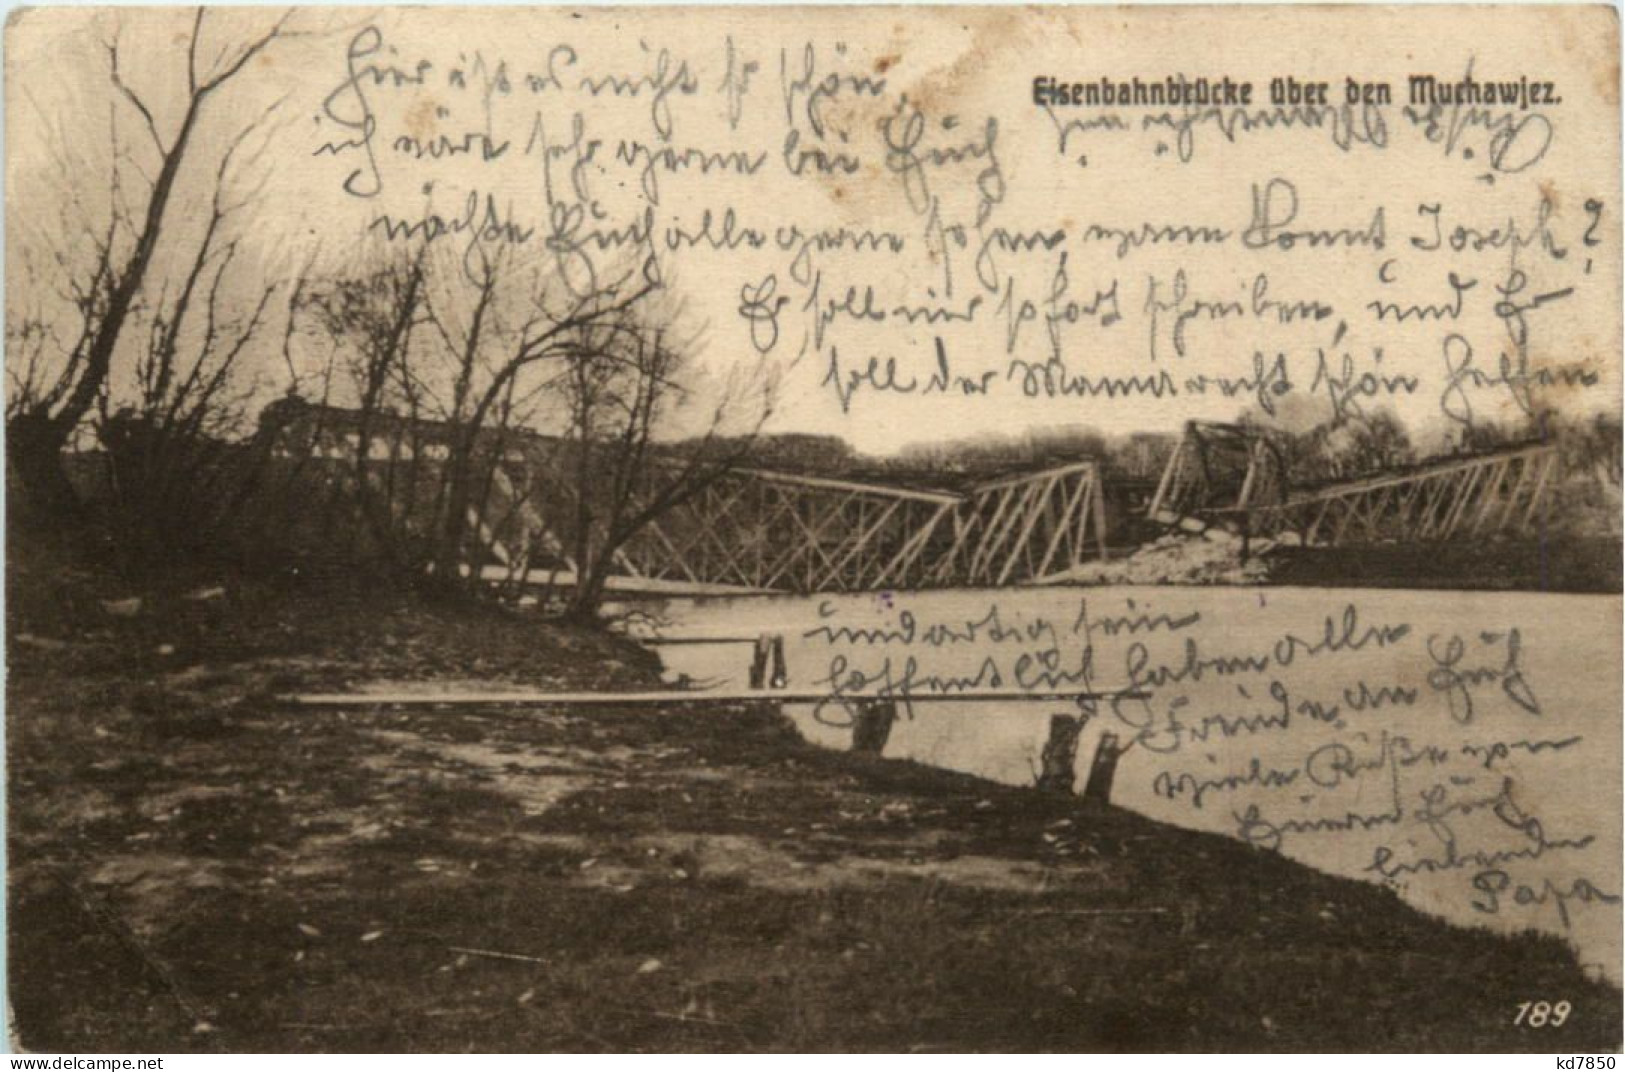 Eisenbahnbrücke über den Muchawjez.
Hier ist es nicht so schön,
ich wäre sehr gerne bei Euch
möchte Euch alle gerne sehen, wann kommt Joseph?
Er soll mir sofort schreiben, und Er
soll der Mama recht schön helfen
und artig sein
hoffentlich haben alle
Freude an Euch
viele Grüße von
Euern Euch
liebenden
Papa
189
www.delcampe.net
kd7850